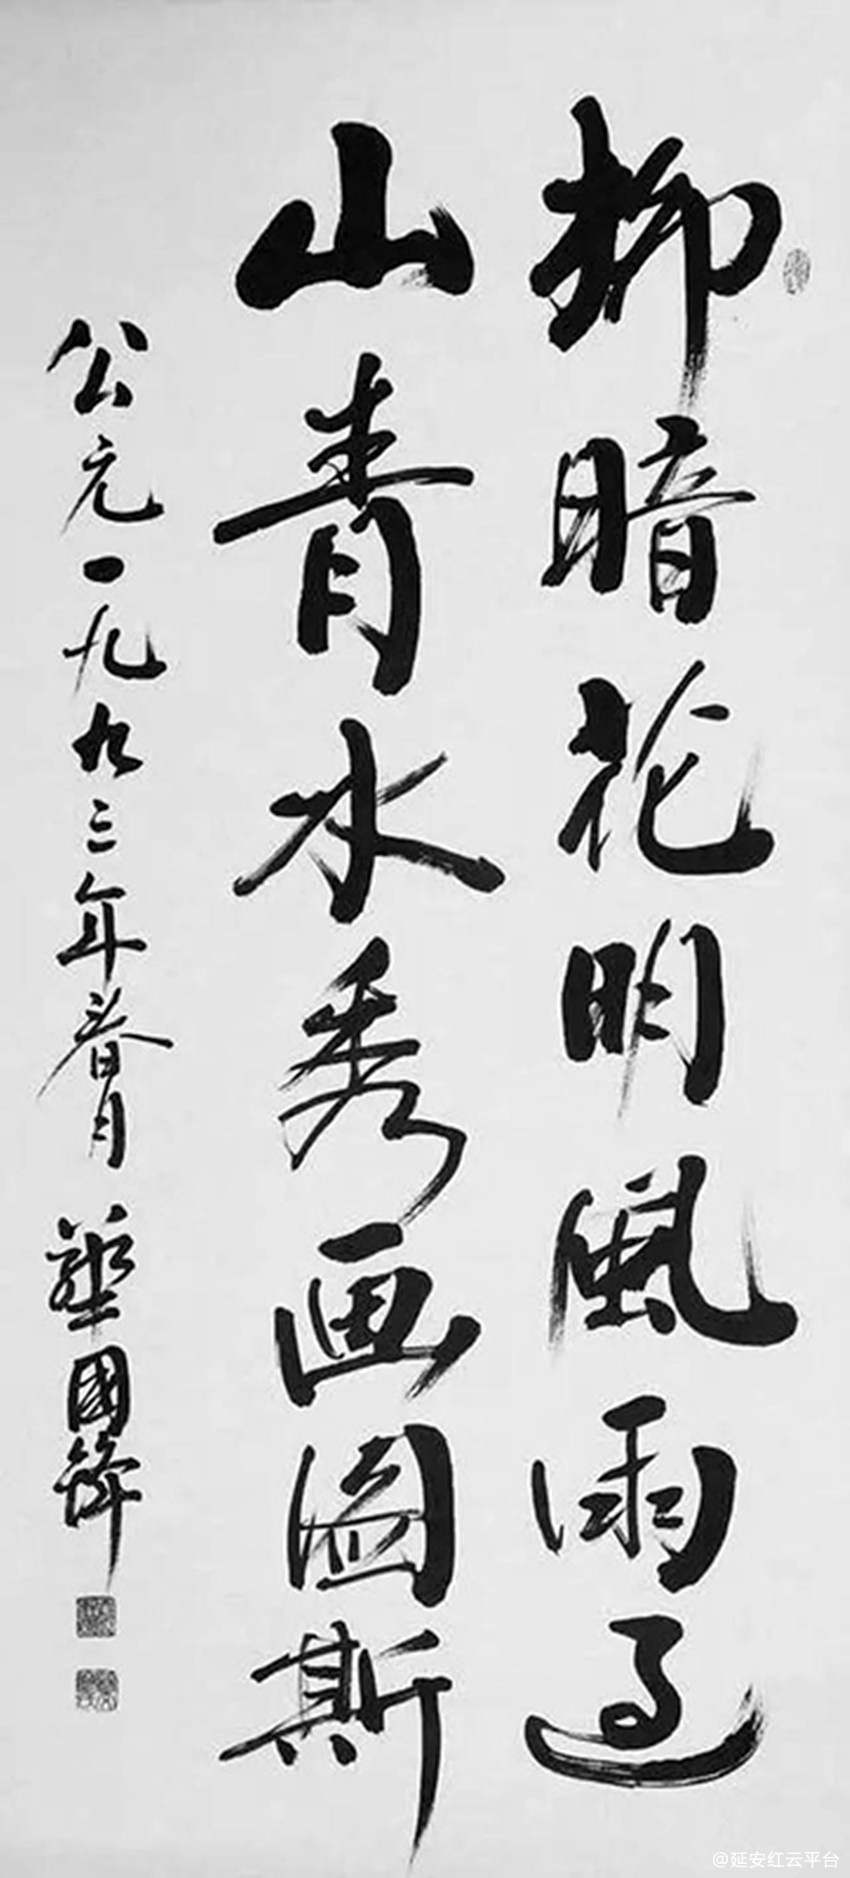 柳暗花明風雨过
山青水秀画图斯
公元一九九三年春月 華國鋒
@延安红云平台